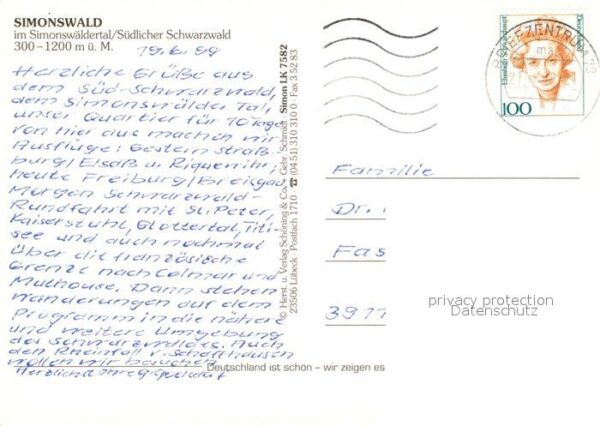 SIMONSWALD
im Simonswäldertal/Südlicher Schwarzwald
300–1200 m ü. M.
19.6.99
Herzliche Grüße aus
dem Süd-Schwarzwald,
dem Simonswälder Tal,
unser Quartier für 10 Tage.
Von hier aus machen wir
Ausflüge: Gestern Straß-
burg/Elsaß u. Riquewihr;
heute Freiburg/Breisgau
Morgen Schwarzwald-
Rundfahrt mit St. Peter,
Kaiserstuhl, Glottertal, Titi-
see und auch nochmal
über die französische
Grenze nach Colmar und
Mulhouse. Dann stehen
Wanderungen auf dem
Programm in die nähere
und weitere Umgebung
des Schwarzwaldes. Auch
den Rheinfall v. Schaffhausen
wollen wir besuchen
Herzlichst Ihre
© Herst. u. Verlag Schöning & Co. + Gebr. Schmidt
Simon LK 7582
23506 Lübeck · Postfach 1710 ☎ (04 51) 310 31 0 · Fax 3 52 83
BRIEFZENTRUM 79
100
Familie
Dr.
Fas
3911
privacy protection
Datenschutz
Deutschland ist schön – wir zeigen es